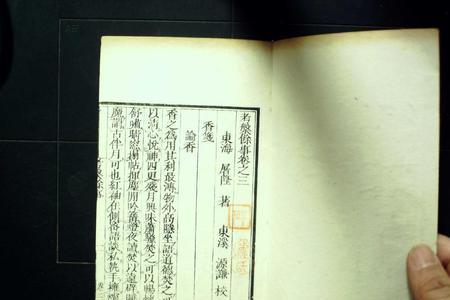 考槃餘事卷之三
東海 屠隆 著 東溪 源謙 校
香箋
論香
香之為用其利最溥物外高隱坐語道德焚之
以清心悅神四更殘月興味蕭騷焚之可以暢
舒嘯晴窗搨帖揮麈閒吟篝燈夜讀焚以遠辟睡
魔謂古伴月可也紅袖在側密語談私執手擁爐